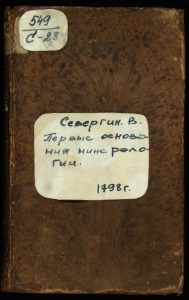 549
С-28
Севергин. В.
Первые основа
ния минерало
гии.
1798г.